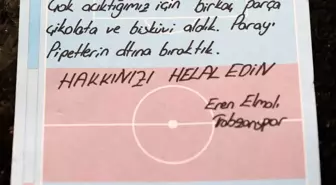 Çok acıktığımız için birkaç parça
çikolata ve biskivi aldık. Parayı
Pipetlerin altına bıraktık.
HAKKINIZI HELAL EDİN
Eren Elmalı
Trabzonspor